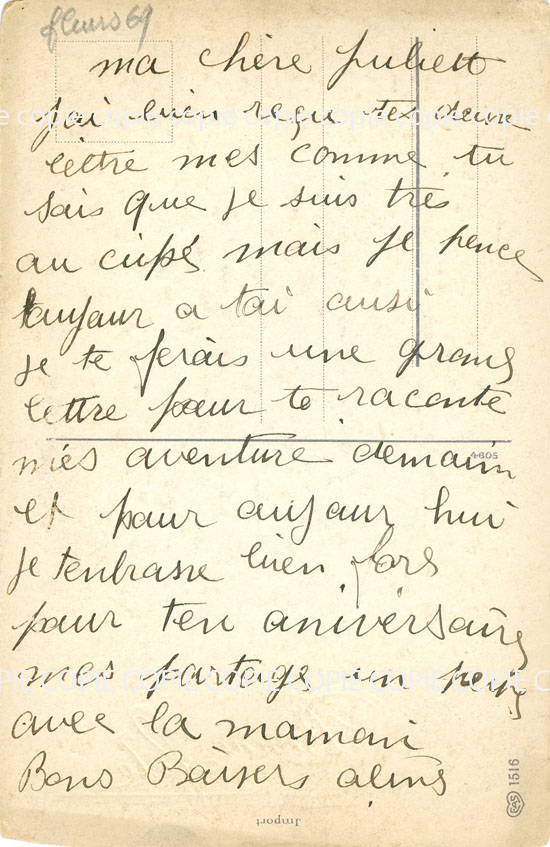 fleurs 69
ma chère Juliett
j'ai bien reçu tes deux
lettre mes comme tu
sais que je suis très
au cupé mais je pence
taujaur a tai ausi
je te ferais une grans
lettre paur te raconte
mes aventure demain
4805
et paur aujaur hui
je tenbrasse bien fors
paur ten aniversaire
mes partage un peux
avec la maman
Bons Baisers aline
COPIE COPIE COPIE COPIE COPIE COPIE
EAS 1516
Import